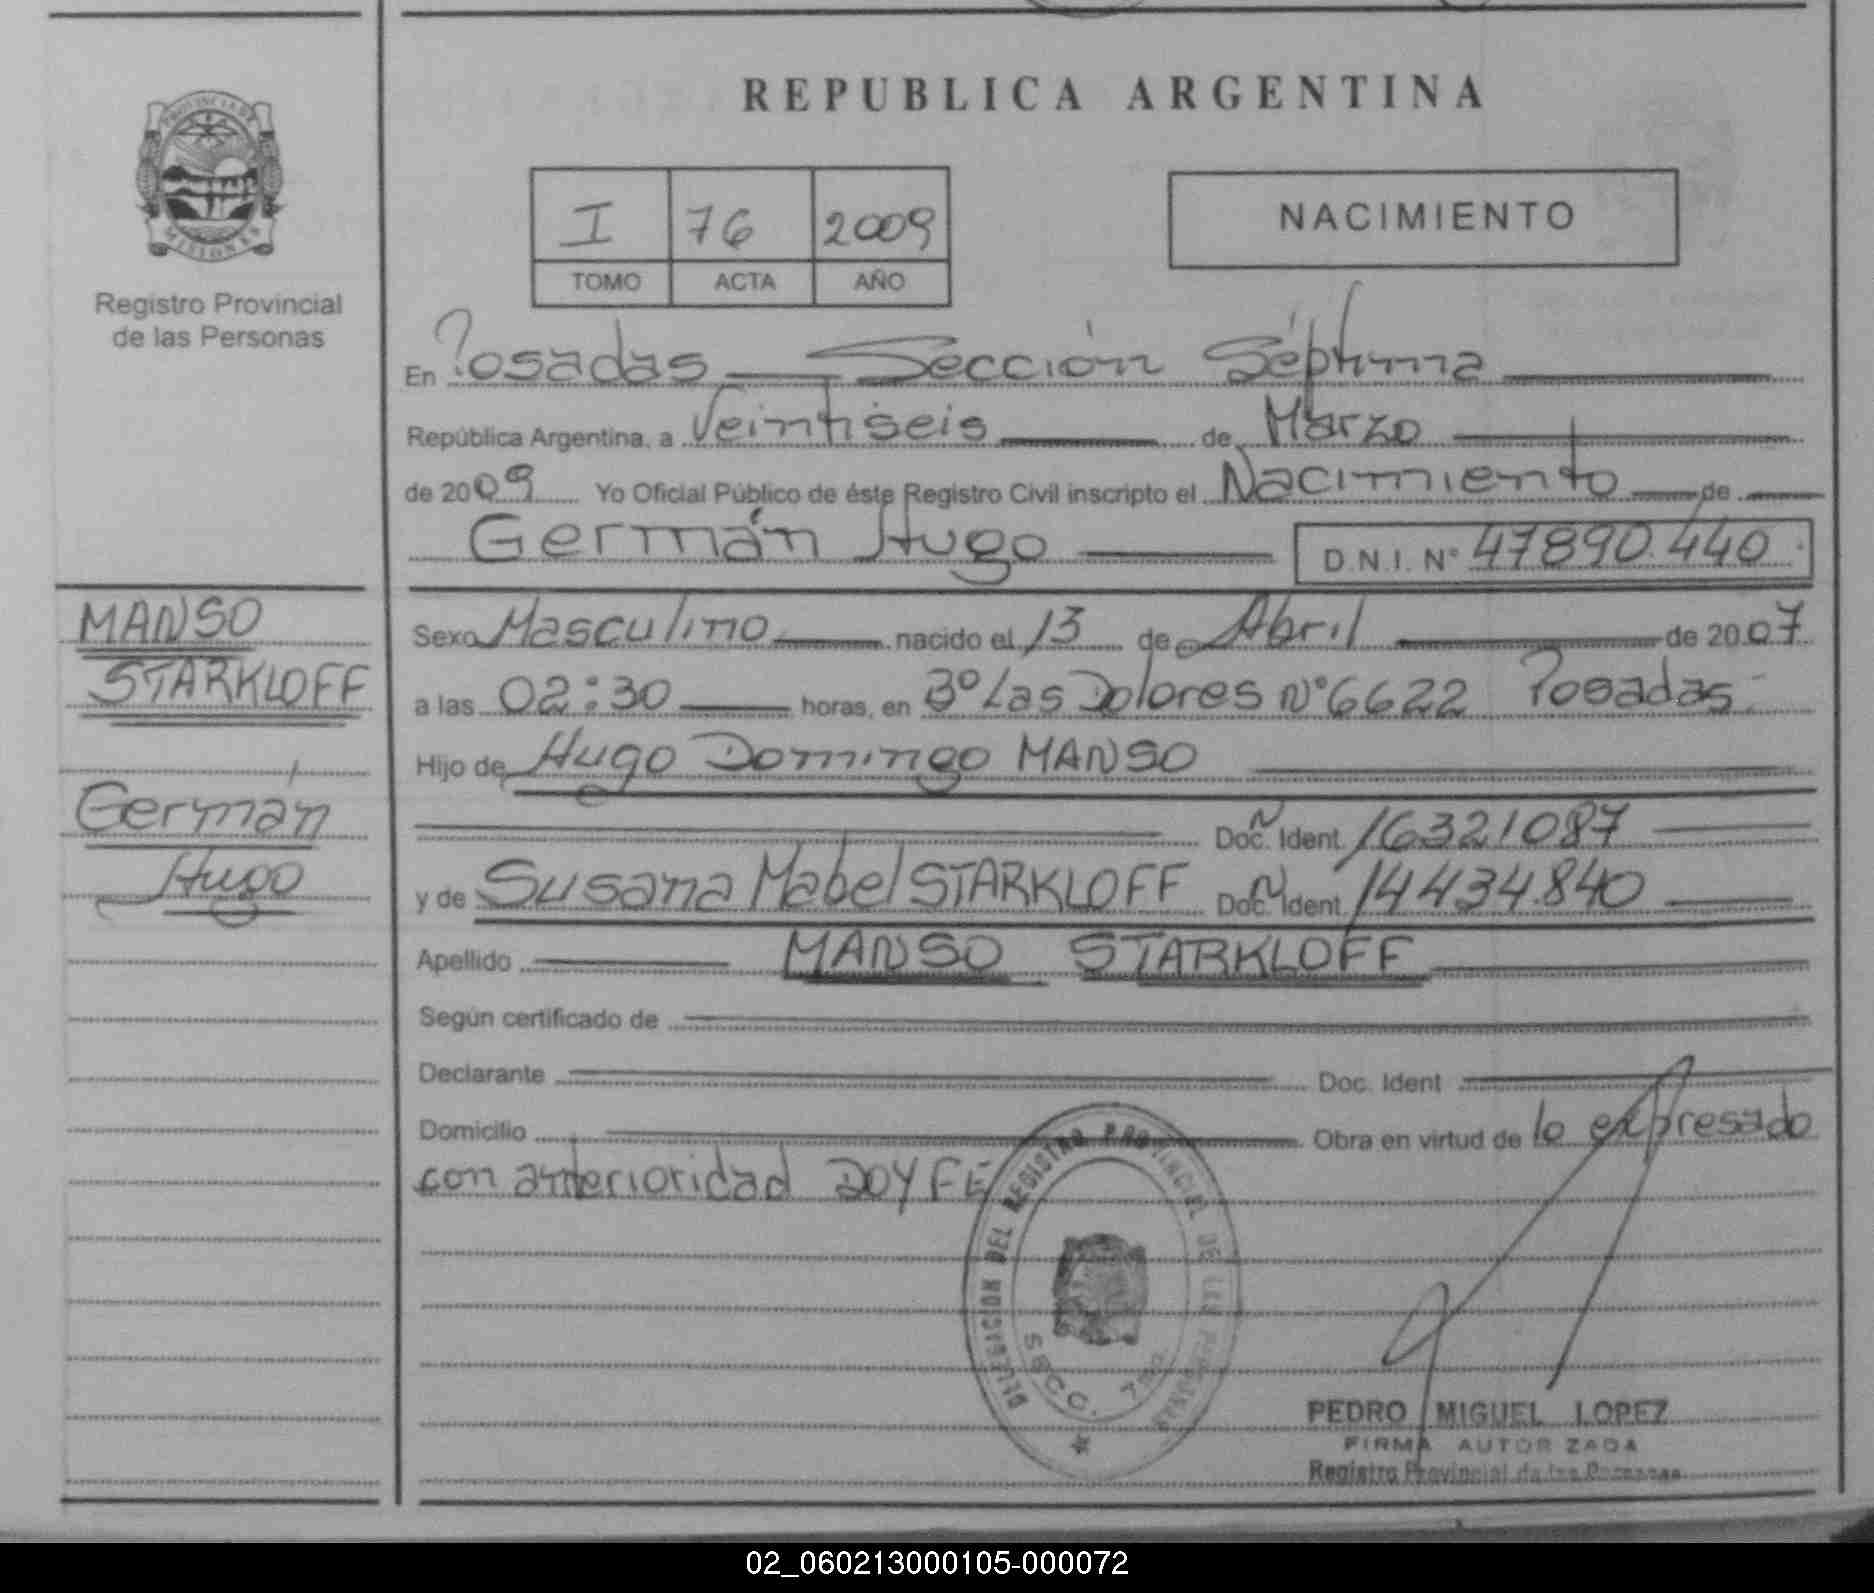 REPUBLICA ARGENTINA
PROVINCIA DE
MISIONES
Registro Provincial
de las Personas
I 76 2009
TOMO ACTA AÑO
NACIMIENTO
En Posadas Sección Séptima
República Argentina, a Veintiseis de Marzo
de 2009 Yo Oficial Público de éste Registro Civil inscripto el Nacimiento de
Germán Hugo D.N.I. Nº 47890.440
MANSO
STARKLOFF
Germán
Hugo
Sexo Masculino nacido el 13 de Abril de 2007
a las 02:30 horas, en Bº Las Dolores Nº 6622 Posadas
Hijo de Hugo Domingo MANSO
Doc. Ident. 16321087
y de Susana Mabel STARKLOFF Doc. Ident. 14434.840
Apellido MANSO STARKLOFF
Según certificado de
Declarante Doc. Ident
Domicilio Obra en virtud de lo expresado
con anterioridad DOY FE
DELEGACION DEL REGISTRO PROVINCIAL DE LAS PERSONAS
SECC. 7ma
PEDRO MIGUEL LOPEZ
FIRMA AUTORIZADA
Registro Provincial de las Personas
02_060213000105-000072